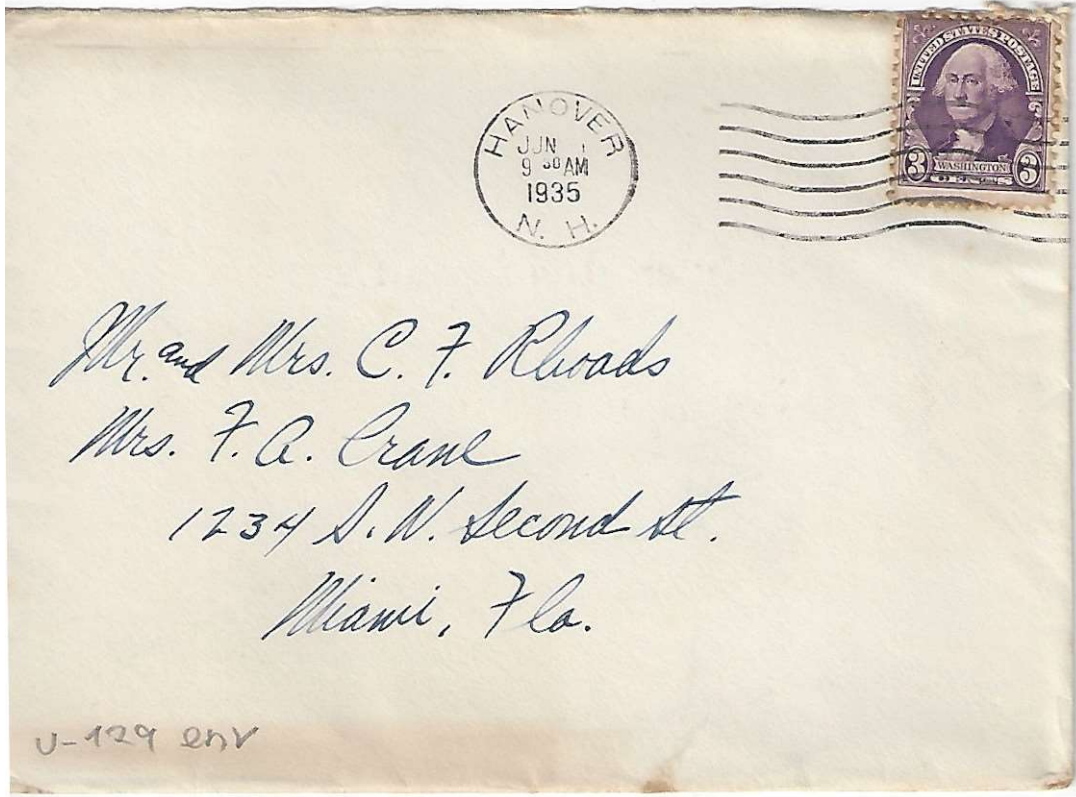 HANOVER
JUN
9 30 AM
1935
N. H.
UNITED STATES POSTAGE
3 WASHINGTON 3
CENTS
Mr. and Mrs. C. F. Rhoads
Mrs. F. A. Crane
1234 S.W. Second St.
Miami, Fla.
u-129 env